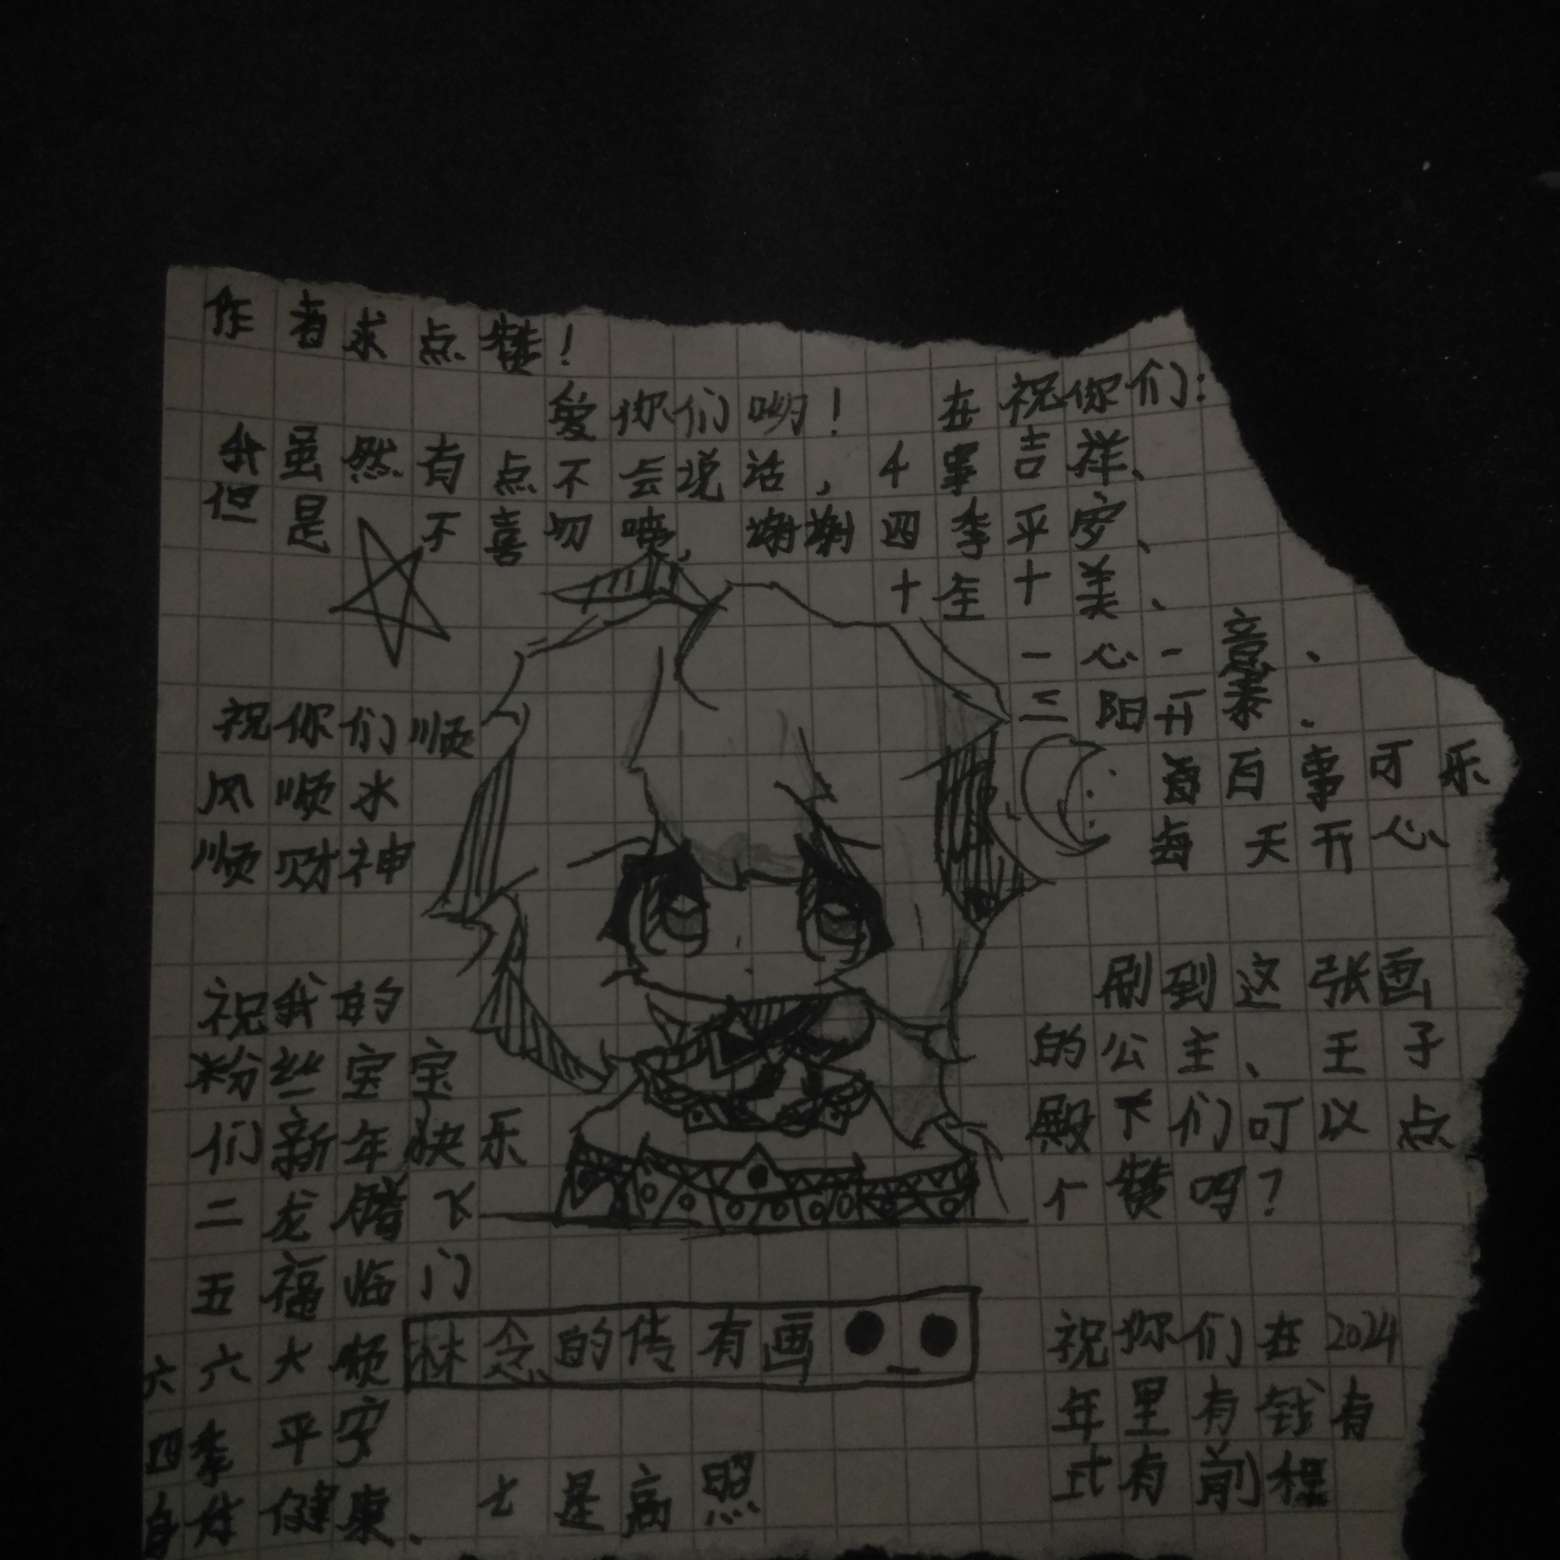 作者求点赞!
爱你们哟!
我虽然有点不会说话,
但是不喜勿喷,谢谢
在祝你们:
事吉祥、
四季平安、
十全十美、
一心一意、
三阳开泰、
百事可乐
每天开心
祝你们顺
风顺水
顺财神
祝我的
粉丝宝宝
们新年快乐
二龙腾飞
五福临门
六六大顺
四季平安
健康、
七星高照
林念的传有画
刷到这张画
的公主、王子
殿下们可以点
个赞吗?
祝你们在2024
年里有钱有
有前程